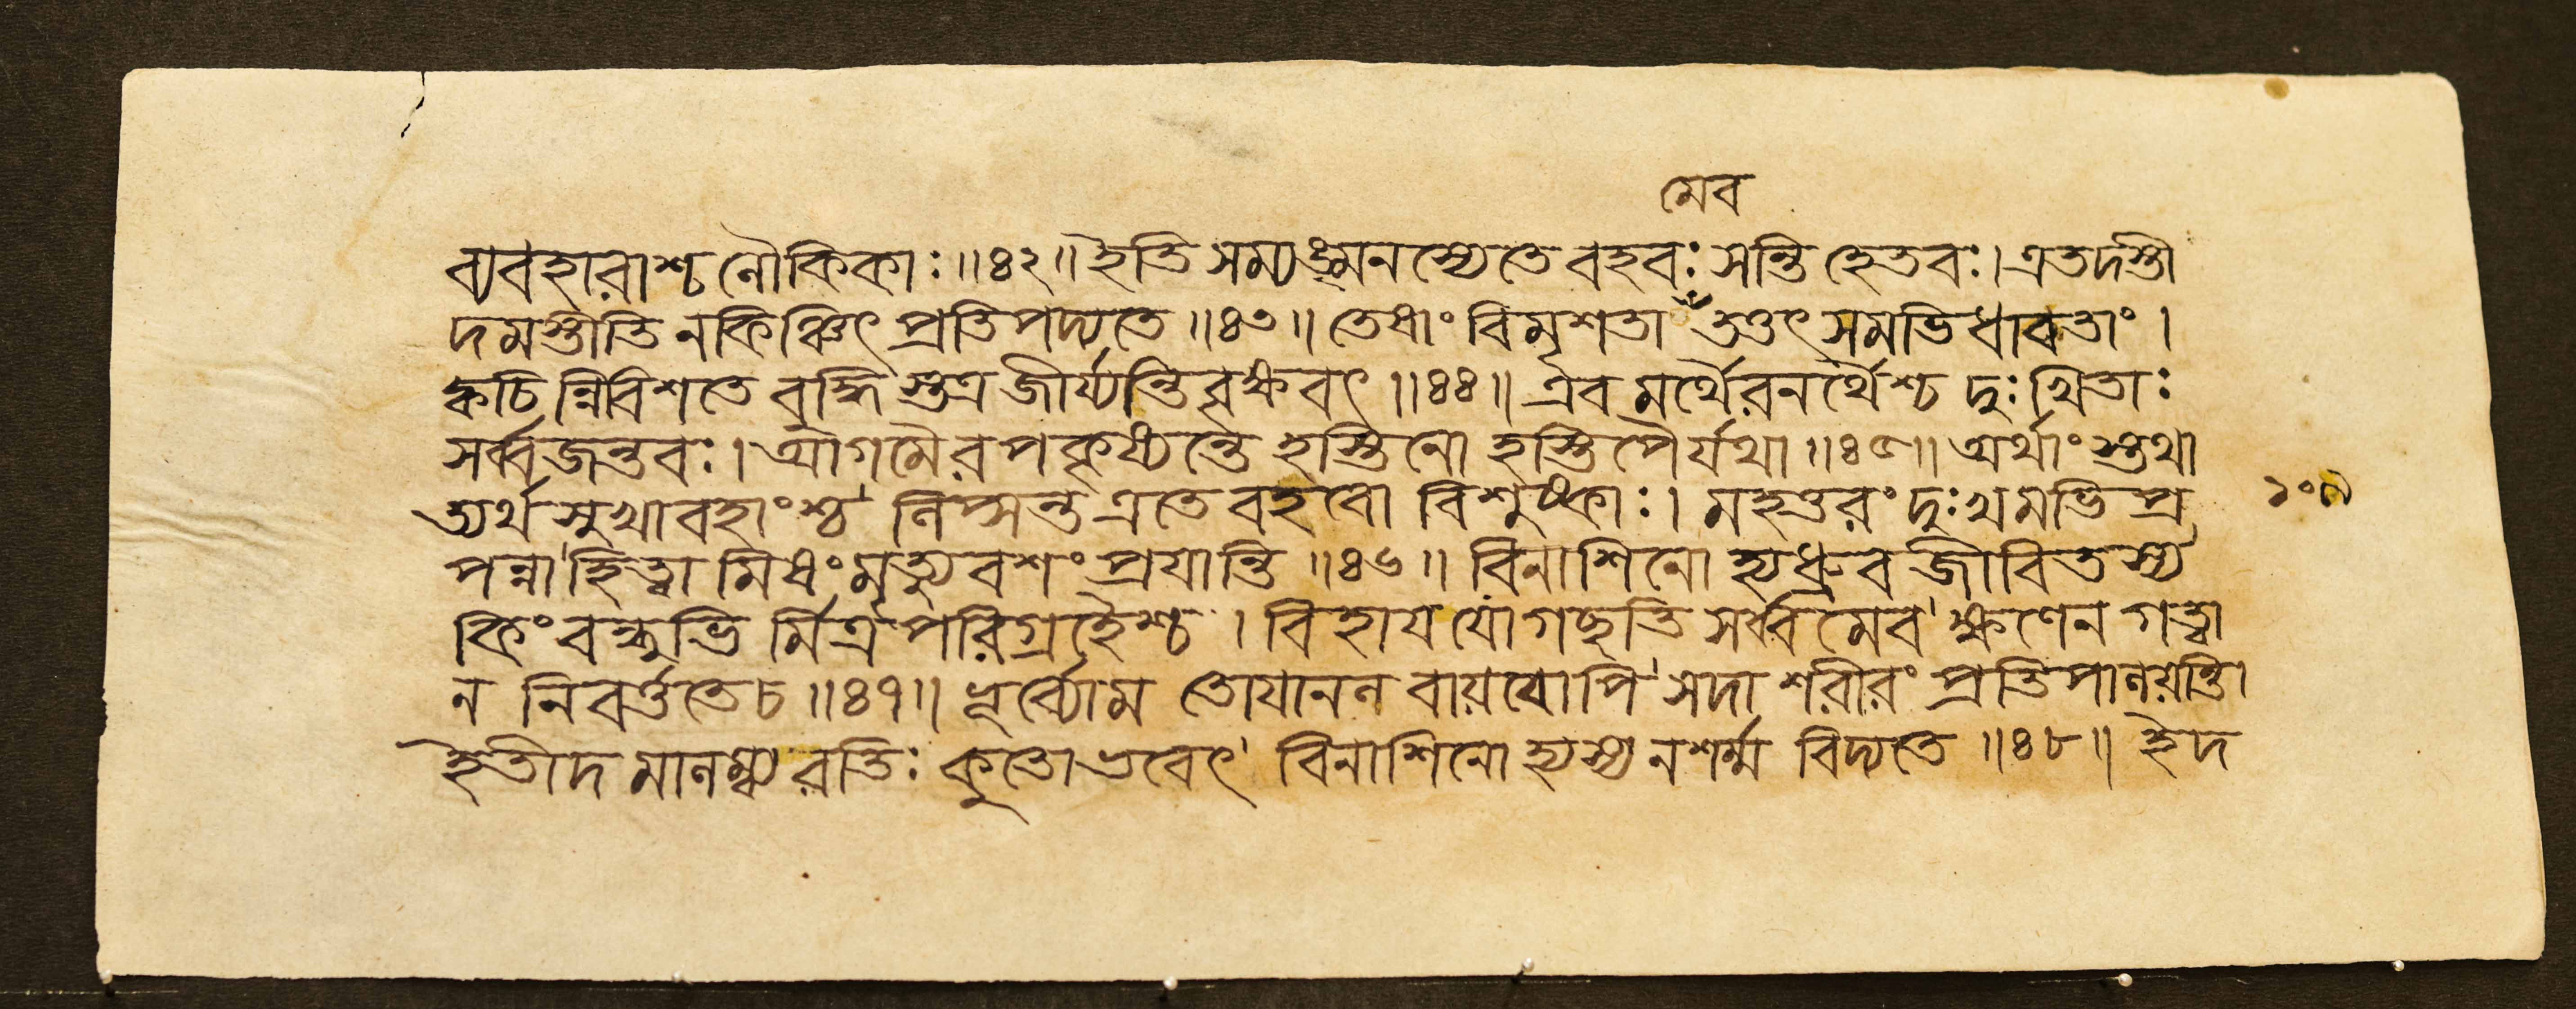 মেব
ব্যবহারাশ্চ লৌকিকাঃ ॥৪২॥ ইতি সম্যঙ্মনস্যেতে বহবঃ সন্তি হেতবঃ। এতদস্তী
দমস্তীতি ন কিঞ্চিৎ প্রতিপদ্যতে ॥৪৩॥ তেষাং বিমৃশতা তত্তৎ সমভিধাবতাং।
ক্বচিন্নিবিশতে বুদ্ধিস্তত্র জীর্য্যন্তি বৃক্ষবৎ ॥৪৪॥ এবমর্থৈরনর্থৈশ্চ দুঃখিতাঃ
সর্ব্বজন্তবঃ। আগমৈরপকৃষ্যন্তে হস্তিনো হস্তিপৈর্যথা ॥৪৫॥ অর্থাংস্তথা
ত্যর্থসুখাবহাংশ্চ লিপ্সন্ত এতে বহবো বিশুষ্কাঃ। মহত্তরং দুঃখমভিপ্র
পন্না হিত্বামিষং মৃত্যুবশং প্রযান্তি ॥৪৬॥ বিনাশিনো হ্যধ্রুব জীবিতস্য
কিং বন্ধুভির্মিত্রপরিগ্রহৈশ্চ। বিহায যো গচ্ছতি সর্ব্বমেব ক্ষণেন গত্বা
ন নিবর্ত্ততে চ ॥৪৭॥ ভূর্ব্যোম তোযানল বায়বোপি সদা শরীরং প্রতিপালয়ন্তি।
ইতীদমালক্ষ্য রতিঃ কুতো ভবেৎ বিনাশিনো হ্যস্য ন শর্ম্ম বিদ্যতে ॥৪৮॥ ইদ